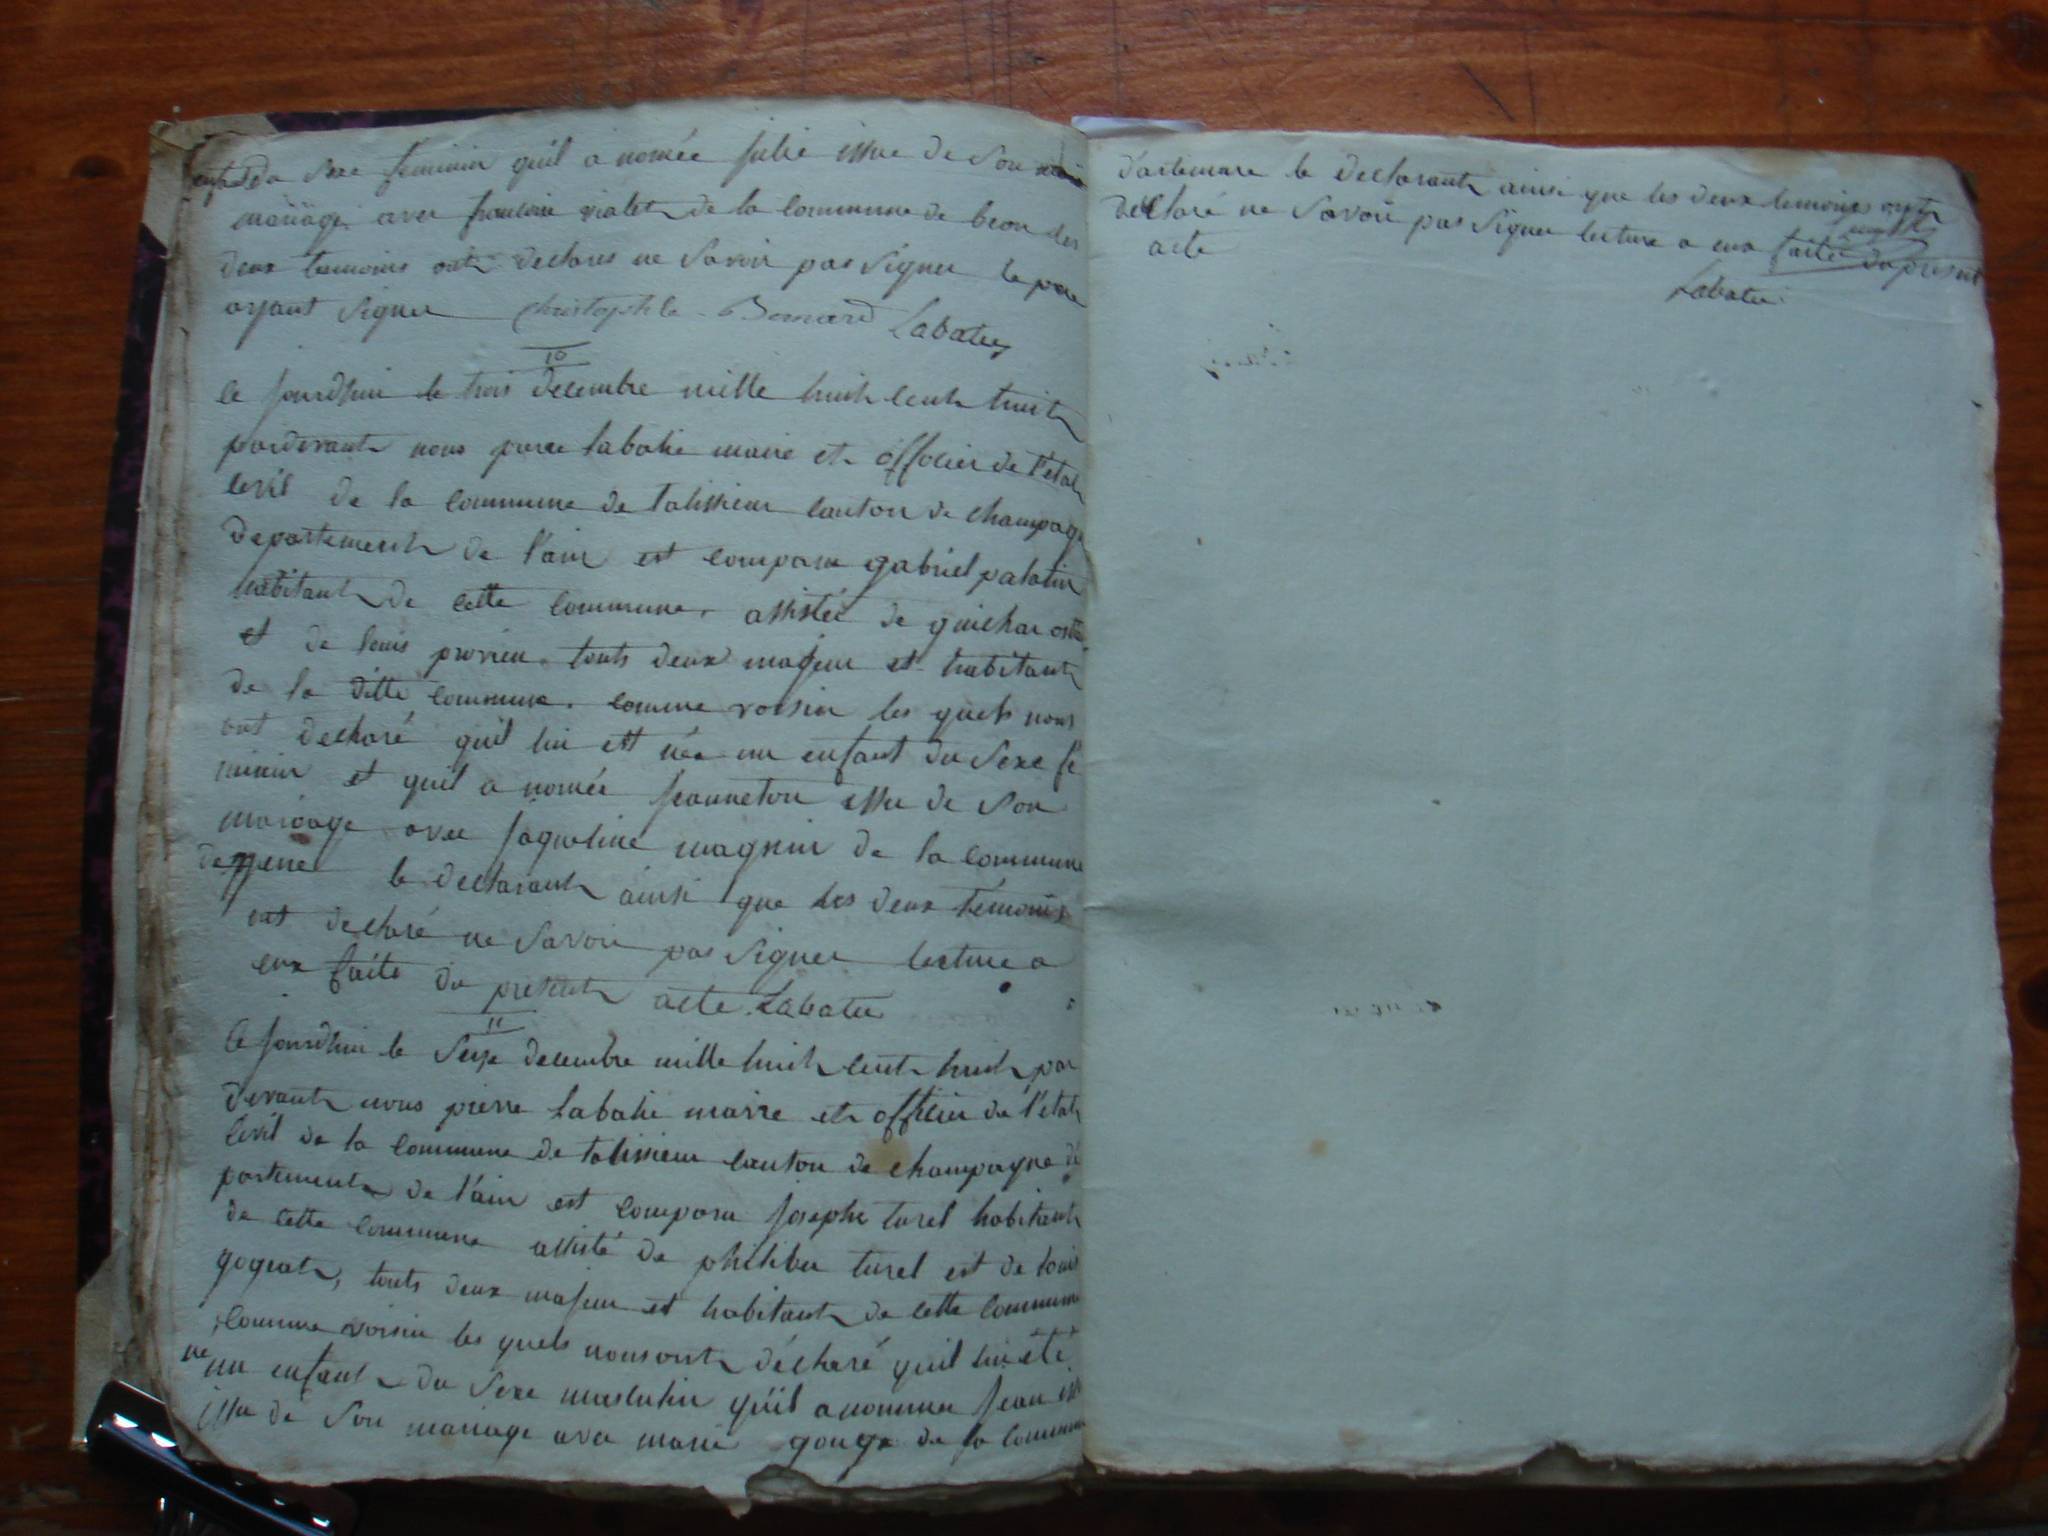 enfant du Sexe feminin quil a nomée julie issue de Son
mariage avec françoise vialet de la commune de beon les
deux temoins ont declares ne Savoir pas Signer le pere
ayant Signer Christophle Bernard Labatie
10
Ce jourdhui le trois decembre mille huit cent huit
pardevant nous pierre labatie maire et officier de l'etat
Civil de la commune de talissieu canton de champagne
departement de l'ain est comparu gabriel palatin
habitant de cette commune, assistée de guichar
et de louis tous deux majeur et habitant
de la ditte commune. comme voisin les quels nous
ont declaré quil lui est née un enfant du Sexe fé
minin et quil a nomée jeanneton issu de Son
mariage avec jaqueline magnin de la commune
le declarant ainsi que les deux témoins
ont declaré ne Savoir pas Signer lecture a
eux faite du present acte Labatie
11
Ce jourdhui le Seize decembre mille huit cent huit par
devant nous pierre labatie maire et officier de l'etat
Civil de la commune de talissieu canton de champagne dé
partement de l'ain est comparu josephe turel habitant
de cette commune assisté de philiber turel est de louis
gogeat, touts deux majeur et habitant de cette commune
comme voisin les quels nous ont déclaré quil lui été
né un enfant du Sexe masculin qu'il a nommer jean
issu de Son mariage avec marie gouge de la commune
d'artemare le declarant ainsi que les deux temoins ont
declaré ne Savoir pas Signer lecture a eux faite du present
acte
Labatie